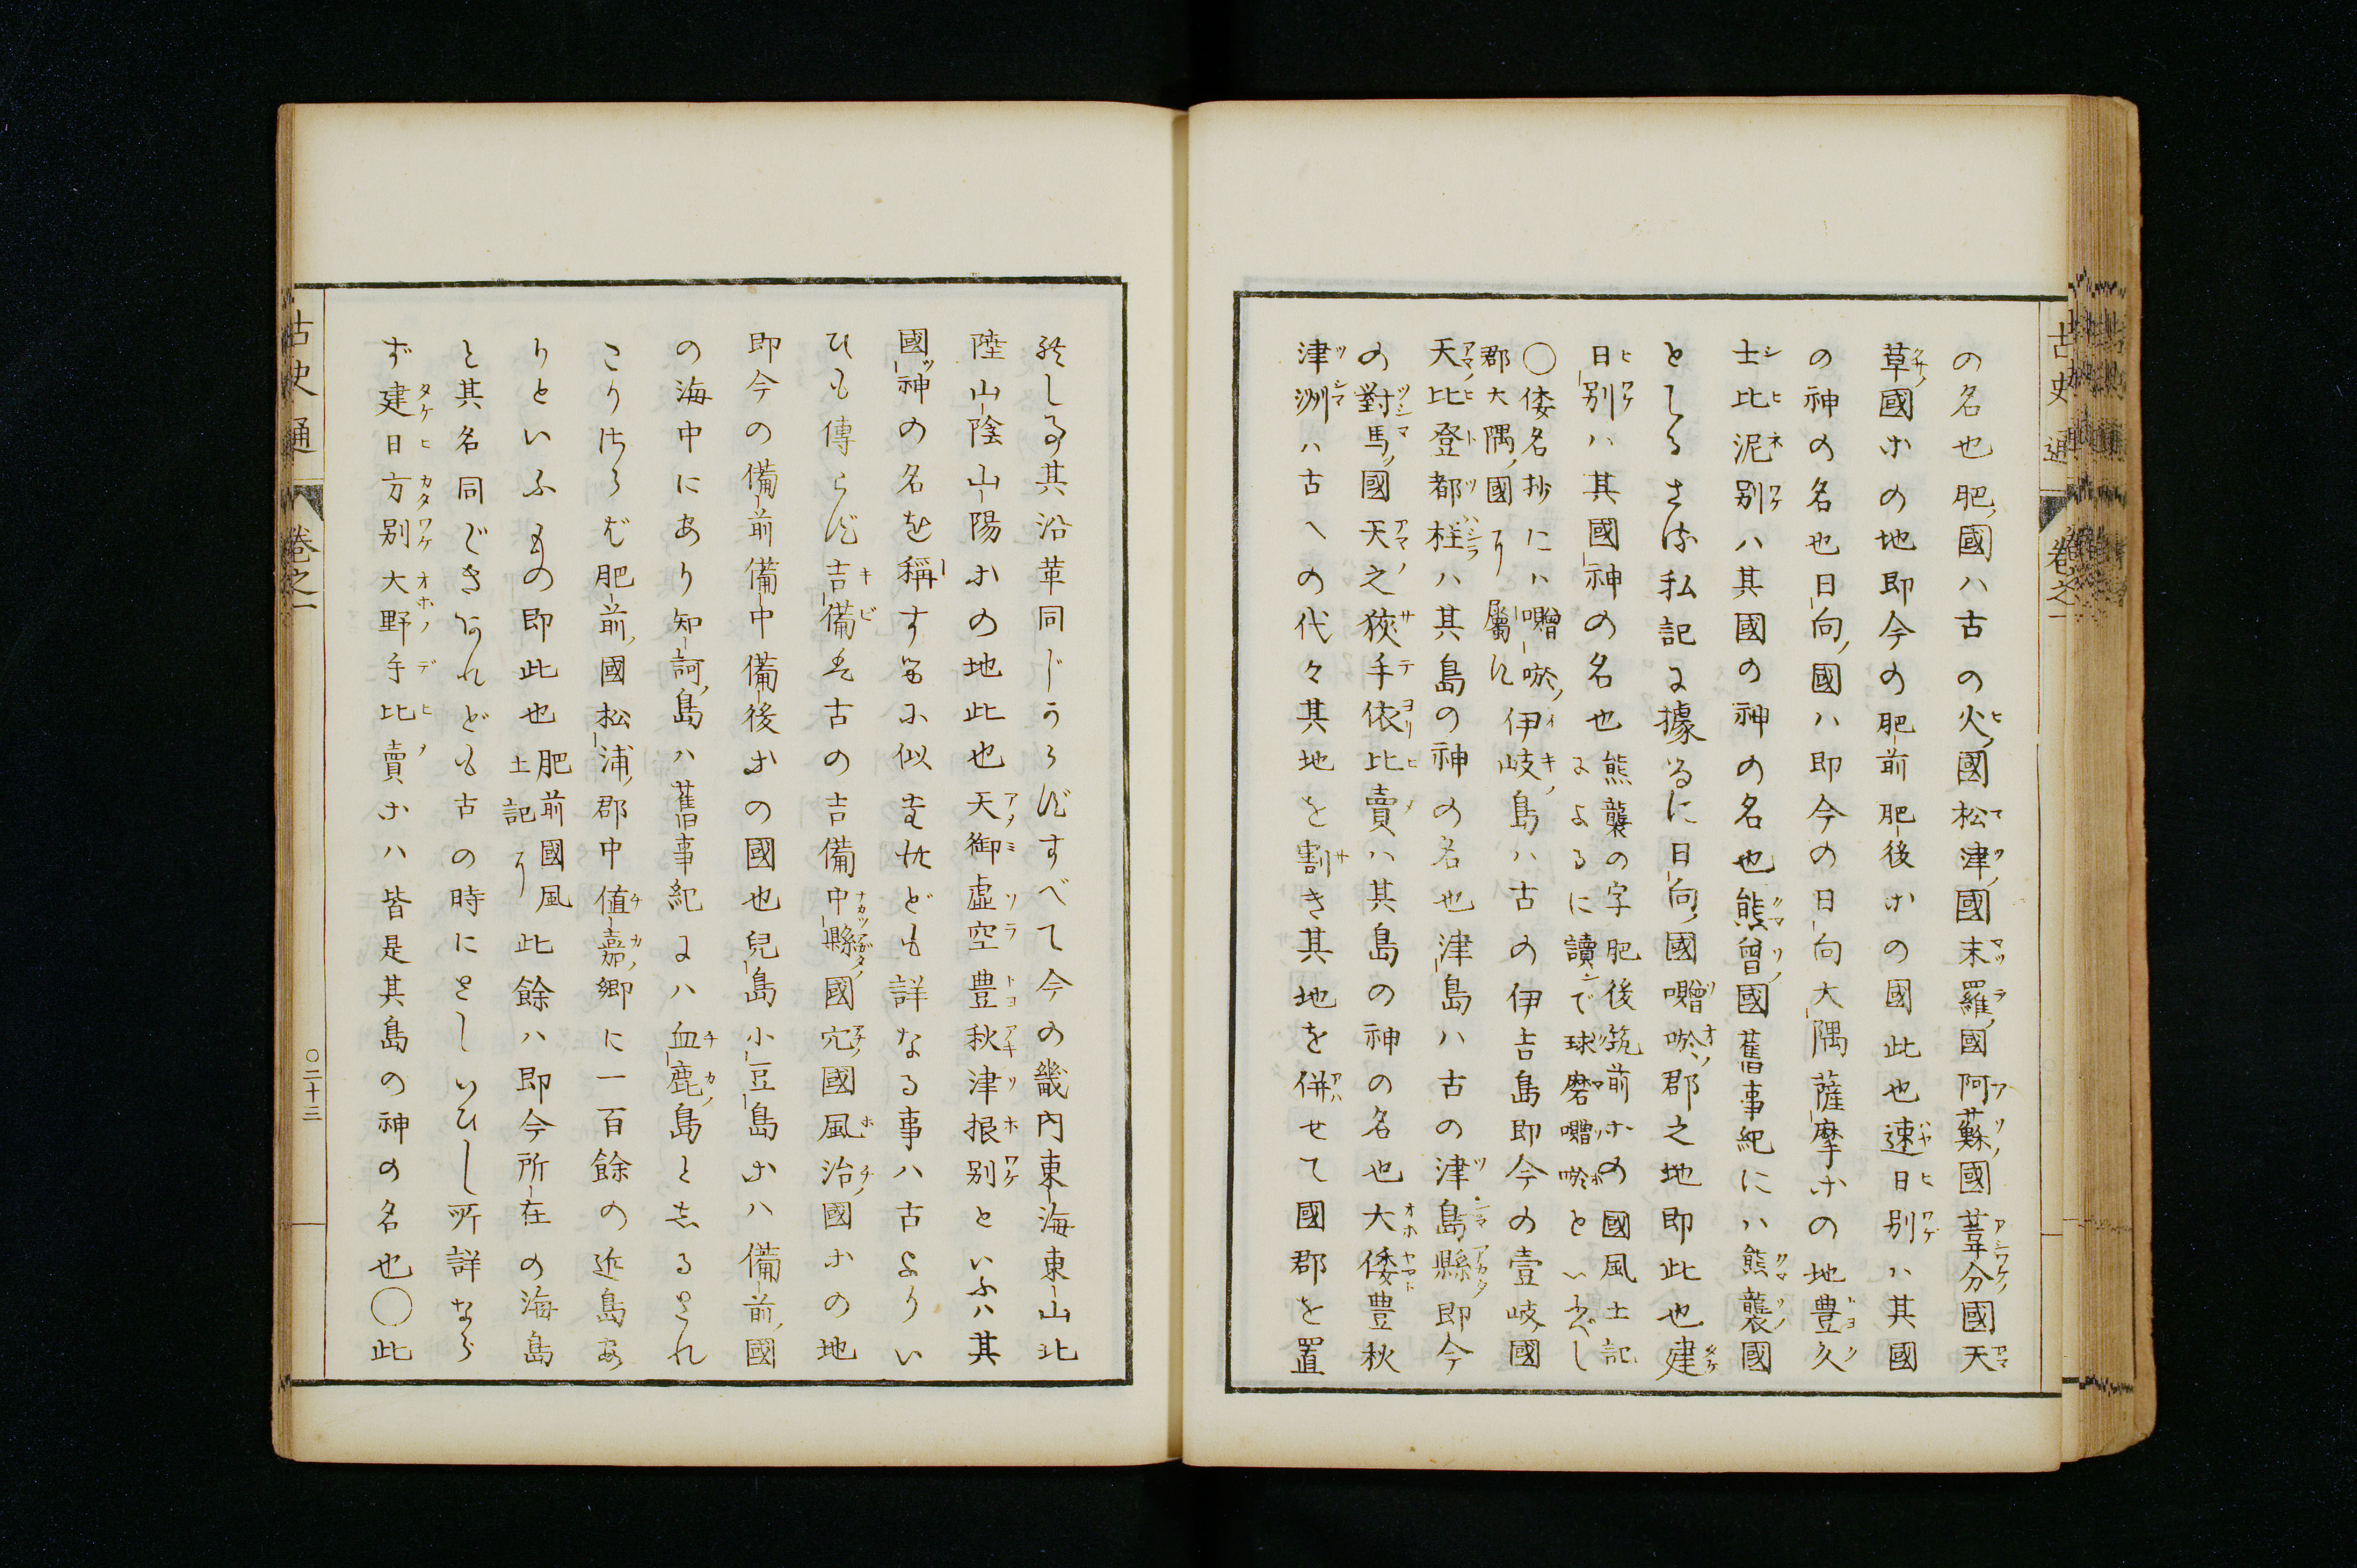 古史通 卷之一
の名也肥國ハ古の火國松津國末羅國阿蘇國葦分國天
草國ホの地即今の肥前肥後ホの國此也速日別ハ其國
の神の名也日向國ハ即今の日向大隅薩摩ホの地豊久
士比泥別ハ其國の神の名也熊曾國舊事紀にハ熊襲國
としるさる私記に據るに日向國囎唹郡之地即此也建
日別ハ其國神の名也熊襲の字肥後筑前ホの國風土記によるに讀で球磨囎唹といふべし
〇倭名抄にハ囎唹郡大隅國に屬す伊岐島ハ古の伊吉島即今の壹岐國
天比登都柱ハ其島の神の名也津島ハ古の津島縣即今
の對馬國天之狹手依比賣ハ其島の神の名也大倭豊秋
津洲ハ古への代々其地を割き其地を併せて國郡を置
れしる其沿革同じからずすべて今の畿内東海東山北
陸山陰山陽ホの地此也天御虚空豊秋津根別といふハ其
國神の名を稱するに似たれども詳なる事ハ古よりい
ひも傳らず吉備は古の吉備中縣國穴國風治國ホの地
即今の備前備中備後ホの國也兒島小豆島ホハ備前國
の海中にあり知訶島ハ舊事紀にハ血鹿島としるされ
こりけらば肥前國松浦郡中値嘉郷に一百餘の近島あ
りといふもの即此也肥前國風土記に此餘ハ即今所在の海島
と其名同じきあれども古の時にさしいひし所詳なら
ず建日方別大野手比賣ホハ皆是其島の神の名也〇此
古史通 卷之一 〇二十三